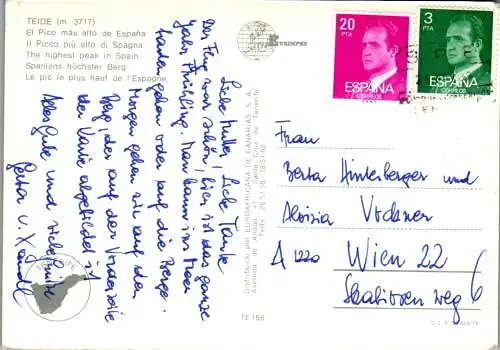 TEIDE (m. 3717)
El Pico más alto de España
Il Picco più alto di Spagna
The highest peak in Spain
Spaniens höchster Berg
Le pic le plus haut de l'Espagne
Liebe Mutter, Liebe Tante
Der Flug war schön, hier ist das ganze
Jahr Frühling. Man kann im Meer
baden gehen oder auf die Berge.
Morgen gehen wir auf den
Berg, der auf der Vorderseite
der Karte abgebildet ist
Alles Gute und viele Grüße
Distribuido por EUROAFRICANA DE CANARIAS S. A.
Avenida de Anaga
Santa Cruz de Tenerife
TE 156
20
PTA
ESPAÑA
CORREOS
3
PTA
ESPAÑA
CORREOS
Frau
Berta Hinterberger und
Aloisia
A 1220 Wien 22
weg 6